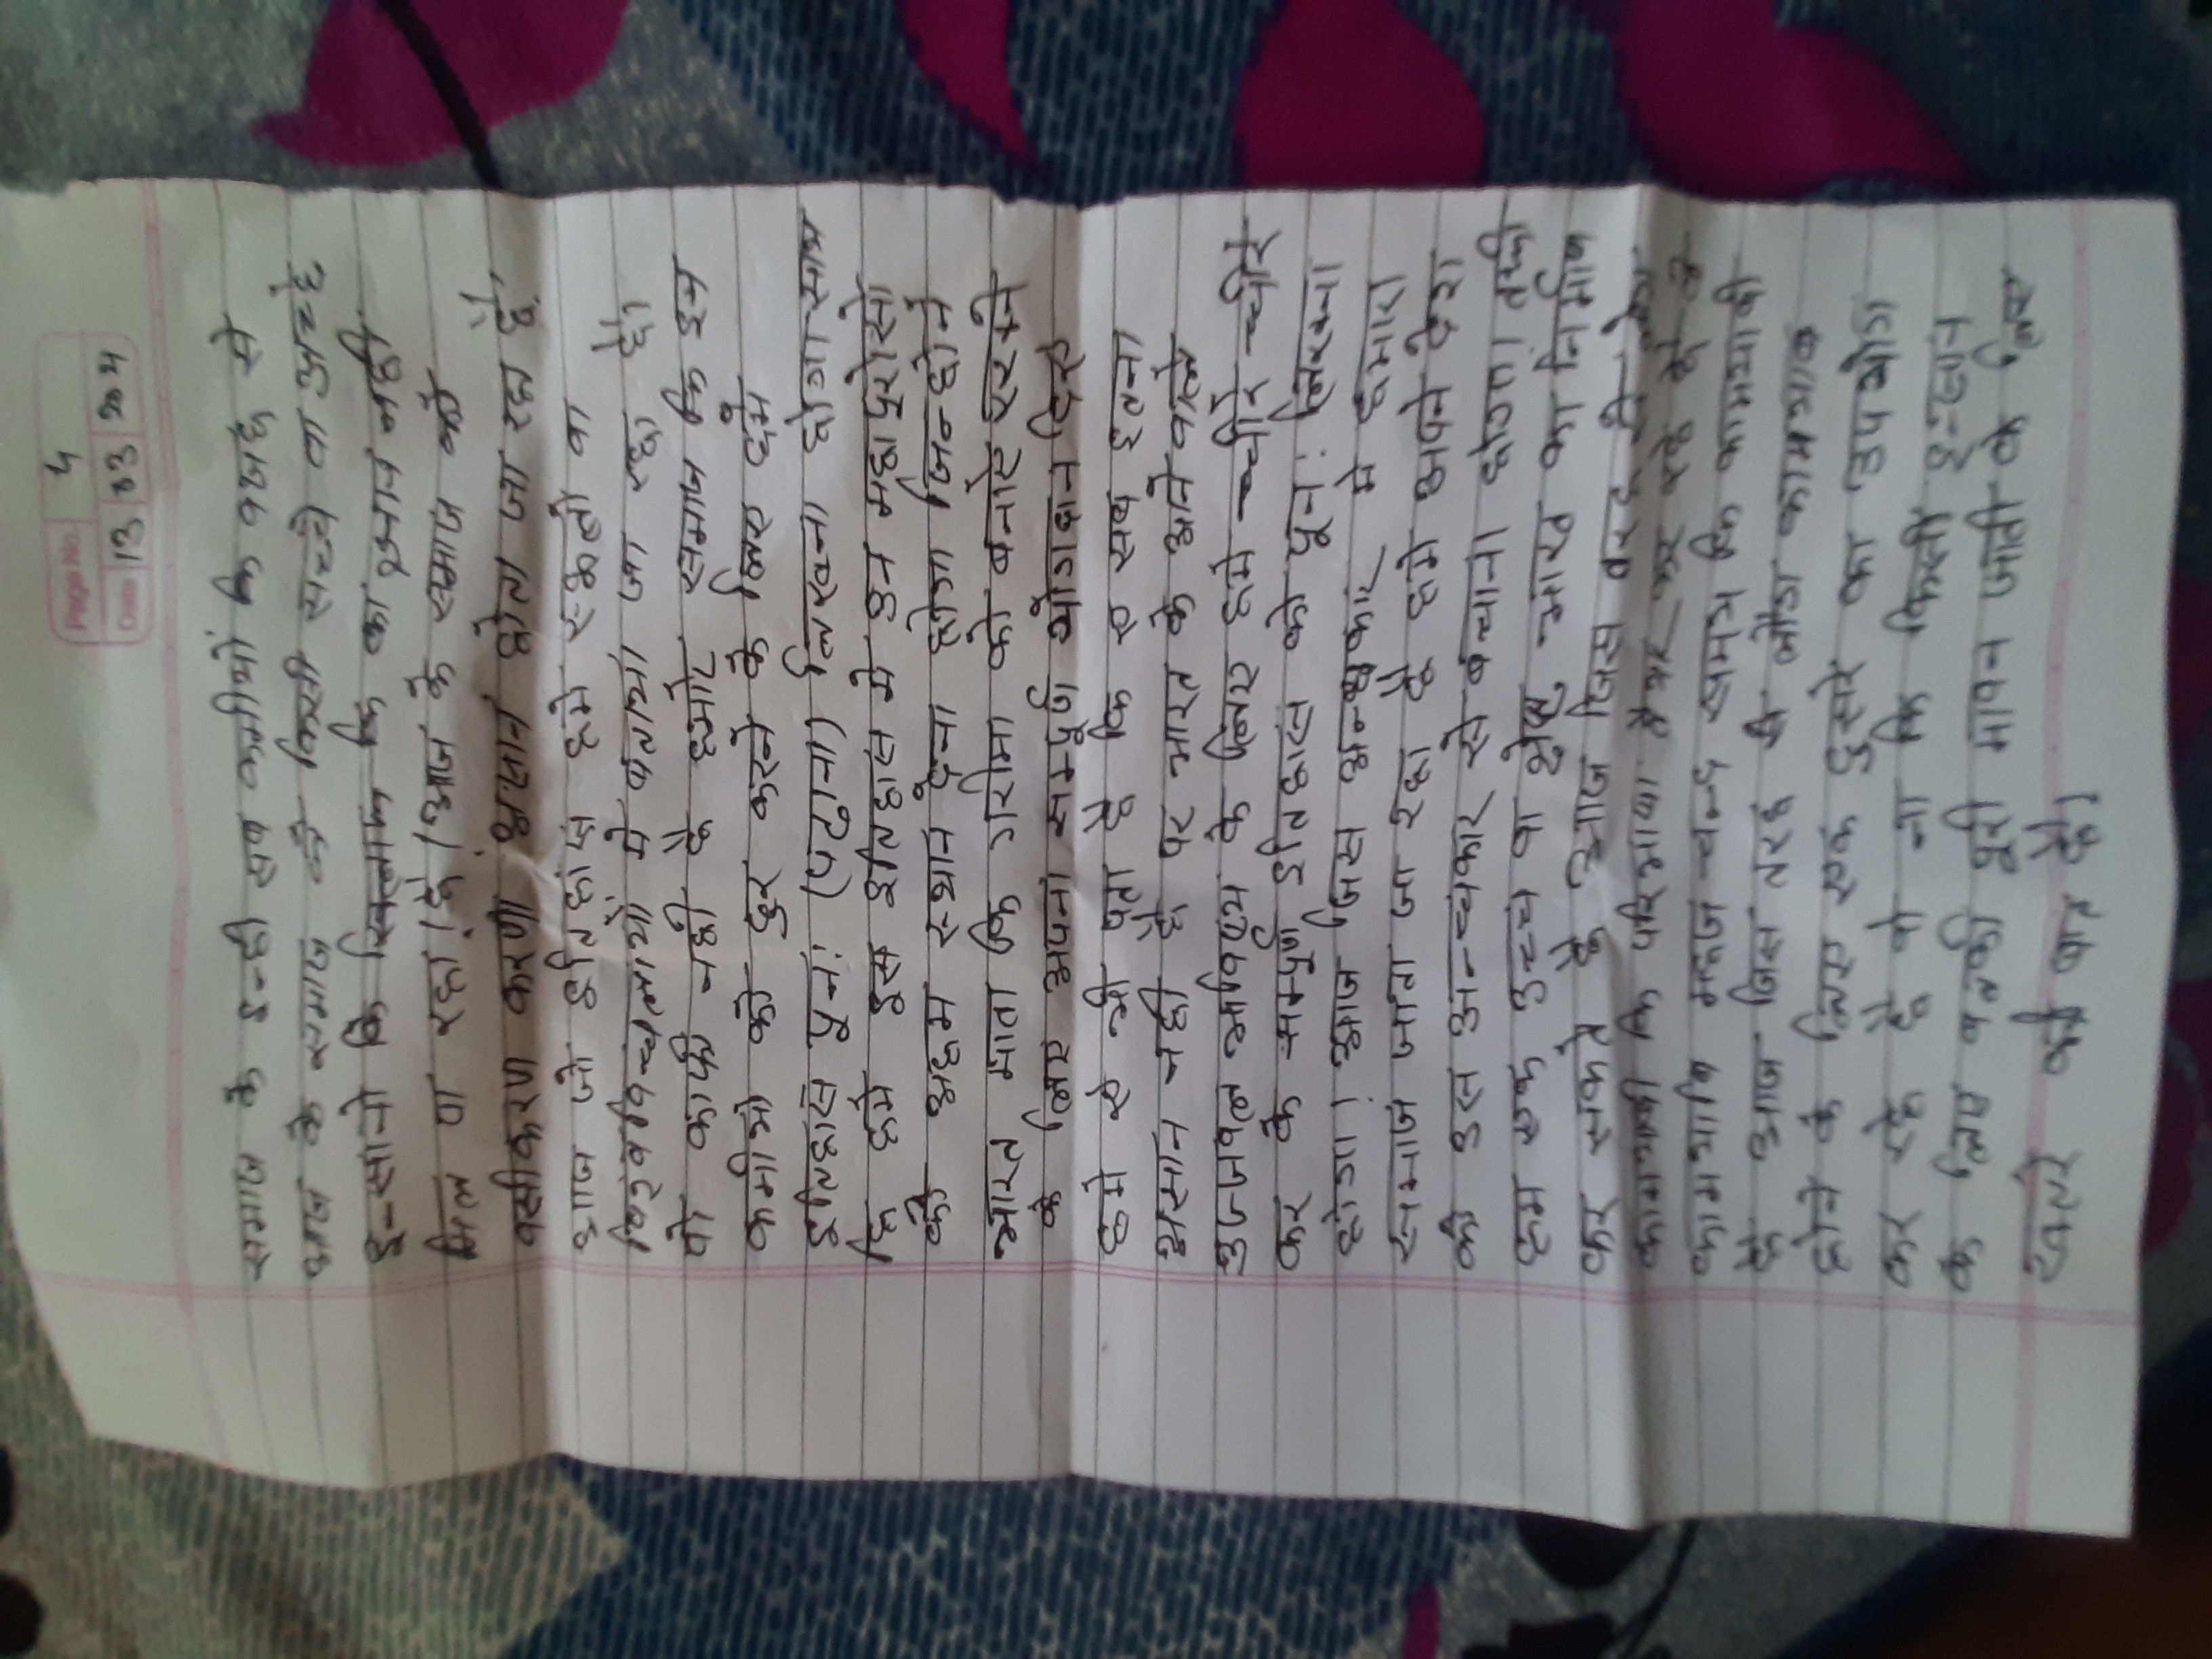 Page No. 4
Date 13 03 2024
समाज के इन्ही सब कमीयों कि वजह से
आज के समाज में किसी सच्चे वा अच्छे
इन्सानो कि सियासत कि का इज्जत नही
मिल पा रहा है। आज के समाज को
वसीकरण करणा आसान होता जा रहा है,
आज जो इतिहास हमे स्कूलो वा
विश्वविद्यालयों में बताया जा रहा है।
वो काफी नही है हमारे समाज कि इन
कमीओ को दुर करने के लिए हमे
इतिहास पुनः (पढ़ना) लिखना होगा साथ
हि हमे इस इतिहास मे उन महापुरुषो
को अहम स्थान देना होगा जिन्होने
भारत माता कि गरिमा को बनाए रखने
के लिए अपना सम्पूर्ण योगदान दिए
हमे ए भी पता है कि ए सब इतना
आसान नही है पर भारत के आने वाले
उज्जवल भविष्य के लिए हमे धीरे-धीरे
कर के सम्पूर्ण इतिहास को पुनः लिखना
होगा। आज जिस अन्धकार मे हमारा
समाज जाता जा रहा है हमे अपने देश
को उस अन्धकार से बचाना होगा। तभी
हम एक उच्च वा श्रेष्ठ भारत का निर्माण
कर सकते है आज जिस तरह से लोग
कामयाबी कि परिभाषा देकर कह रहे है के
कामयाबि महज चन्द समय कि कामयाबी
है आज जिस तरह से लोग कामयाब
होने के लिए एक दुसरे का उपयोग
कर रहे है वो ना कि किसी इन्सान
के लिए बल्की पुरी मानव जाती के लिए
खतरे की बात है।